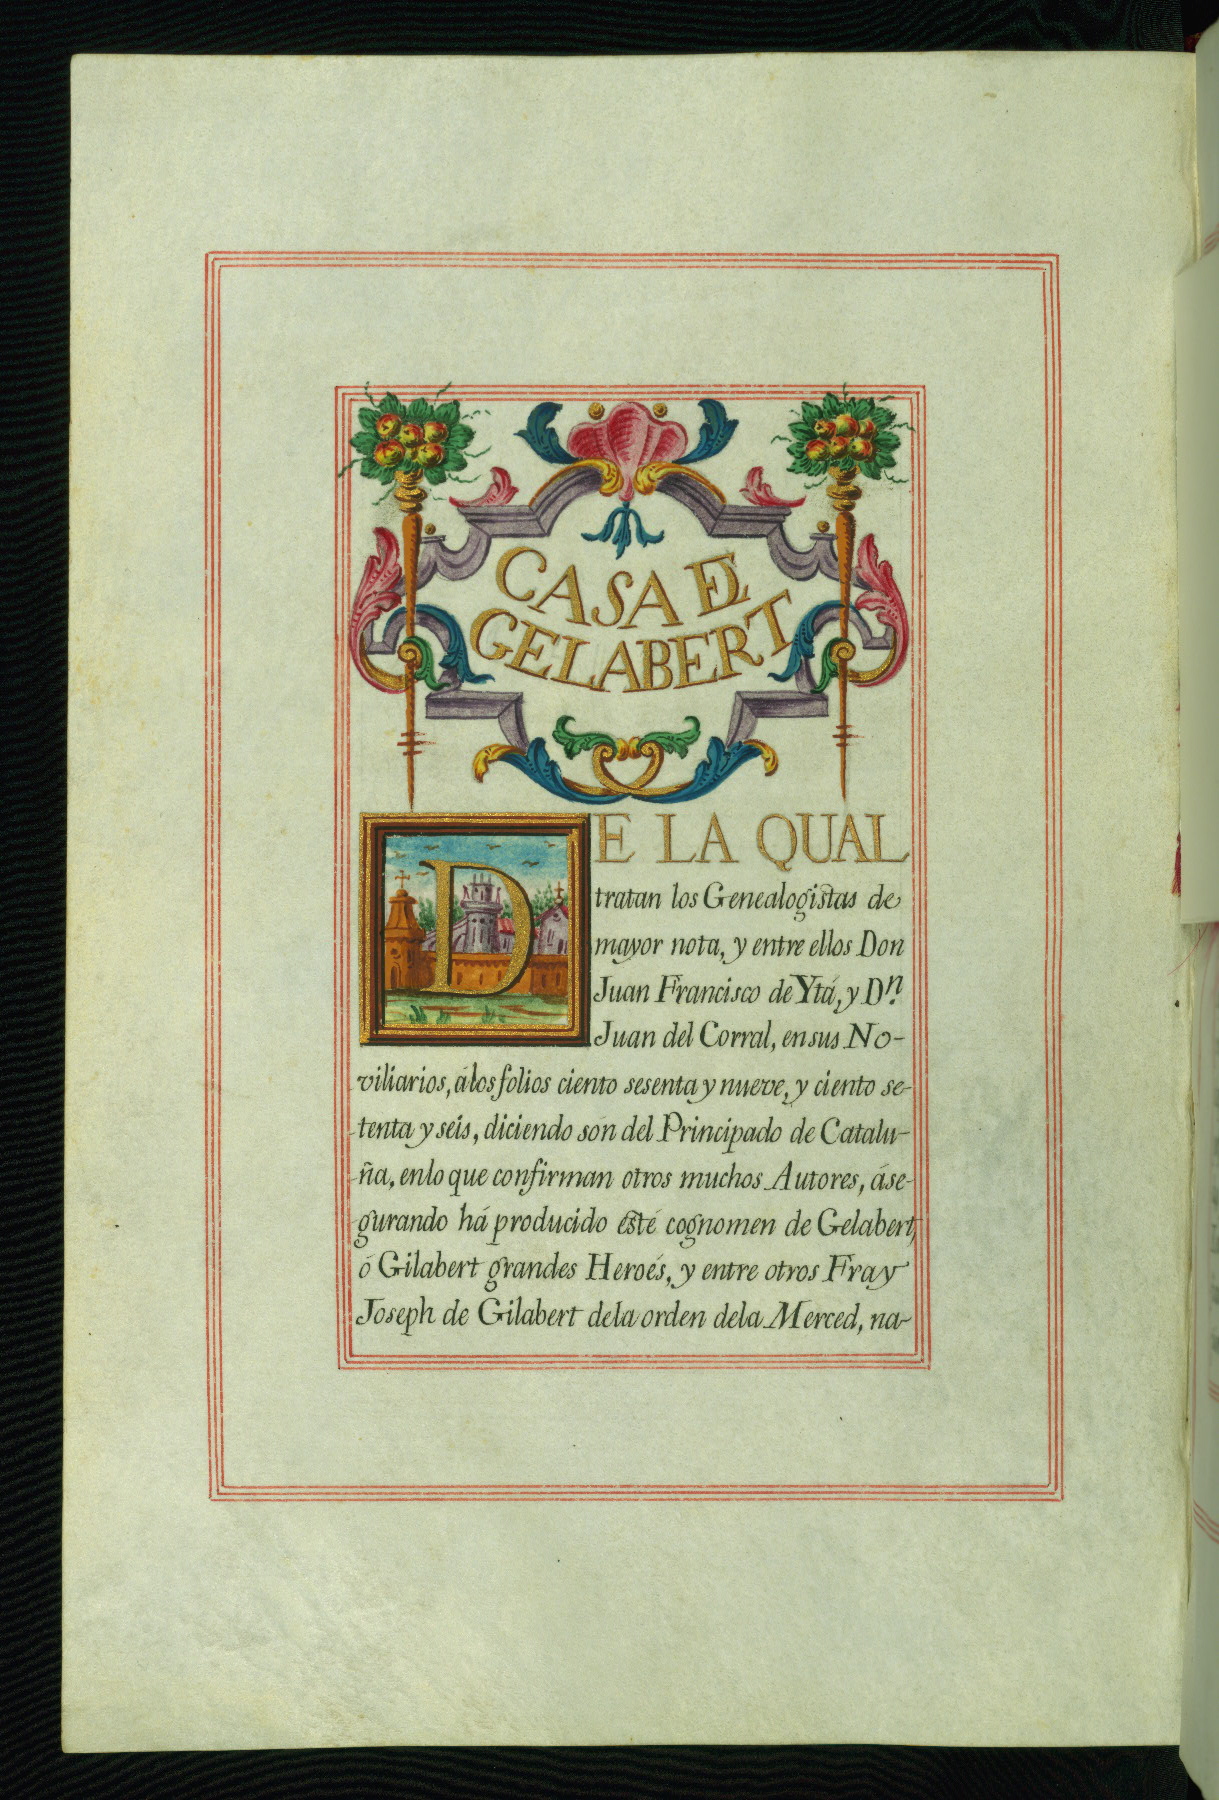 CASA DE
GELABERT
DE LA QUAL
tratan los Genealogistas de
mayor nota, y entre ellos Don
Juan Francisco de Ytá, y Dn.
Juan del Corral, en sus No-
viliarios, álos folios ciento sesenta y nueve, y ciento se-
tenta y seis, diciendo són del Principado de Catalu-
ña, enlo que confirman otros muchos Autores, áse-
gurando há producido ésté cognomen de Gelabert,
ó Gilabert grandes Heroés, y entre otros Fray
Joseph de Gilabert dela orden dela Merced, na-